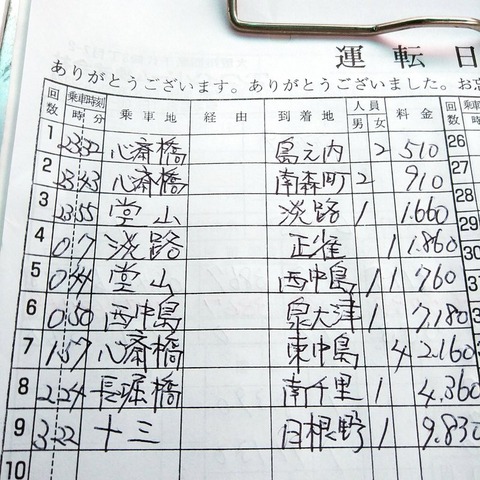 運転日
ありがとうございます。ありがとうございました。お忘
回数 乗車時刻 時 分 乗車地 経由 到着地 人員 男 女 料金 回数
1 23 32 心斎橋 島之内 2 510 26
2 23 43 心斎橋 南森町 2 910 27
3 23 55 堂山 淡路 1 1.660 28
4 0 7 淡路 正雀 1 1.860 29
5 0 44 堂山 西中島 1 1 760 30
6 0 50 西中島 泉大津 1 7.180
7 1 57 心斎橋 東中島 4 2.160
8 2 24 長堀橋 南千里 1 4.360
9 3 22 十三 日根野 1 9.830
10